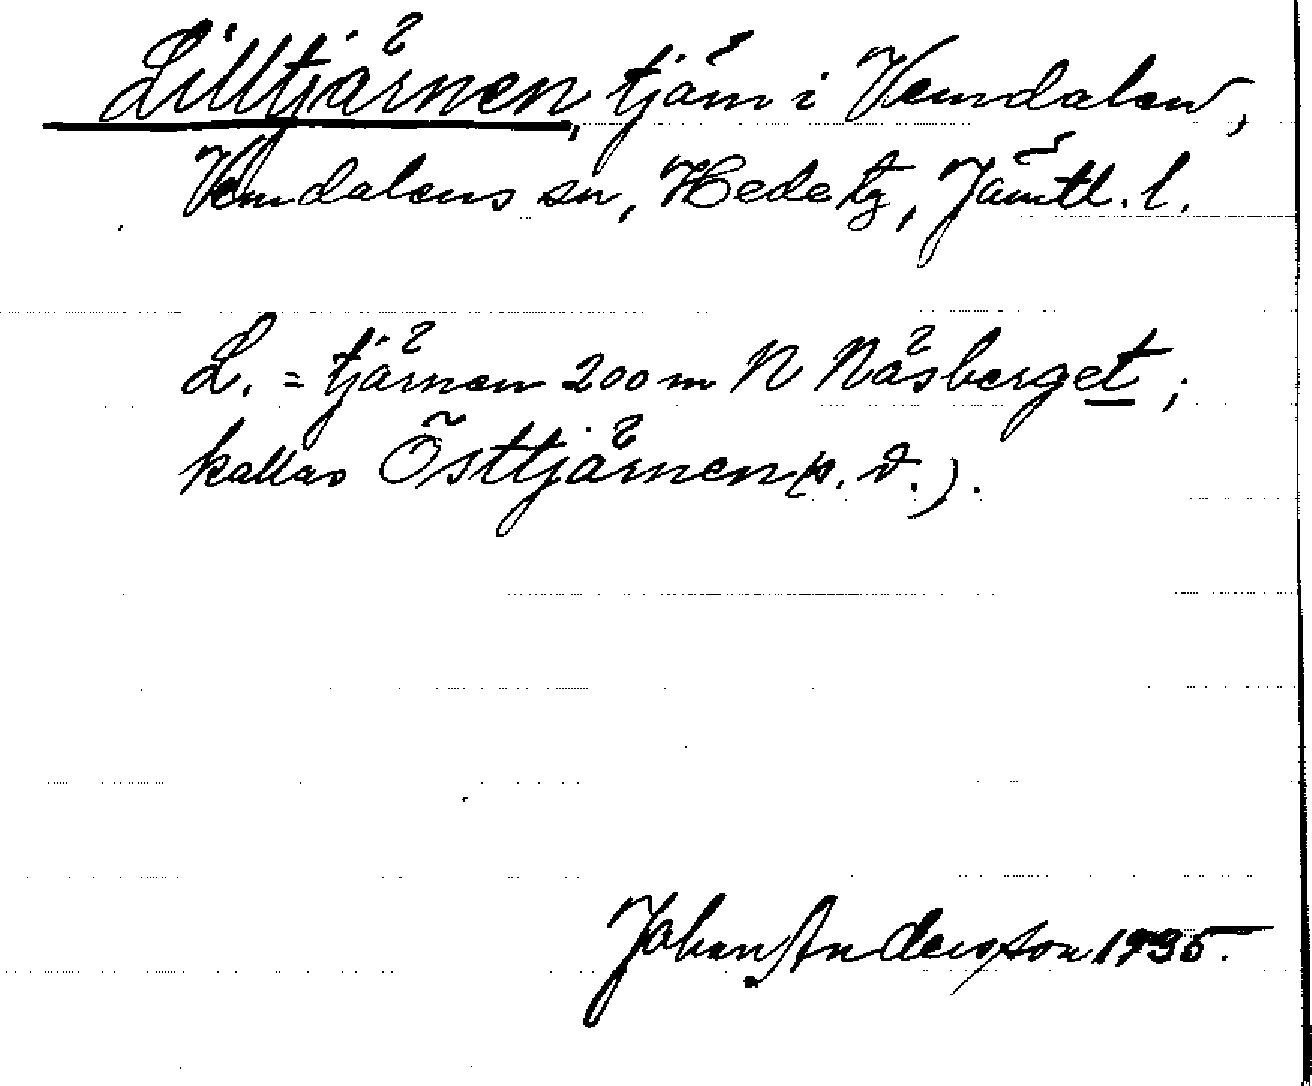 Lilltjärnen, tjärn i Vemdalen,
Vemdalens sn, Hede tg, Jämtl. l.
L. = tjärnen 200 m N Näsberget;
kallas Östtjärnen (s. d.).
Johan Andersson 1935.